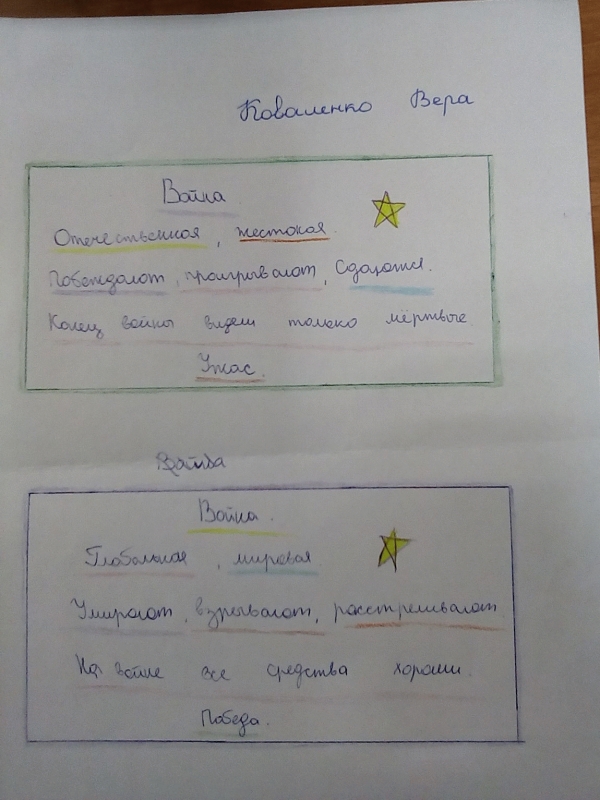 Коваленко Вера
Война.
Отечественная, жестокая.
Побеждают, проигрывают, сдаются.
Конец войны видели только мёртвые
Ужас.
Война.
Глобальная, мировая
Умирают, взрывают, расстреливают
На войне все средства хороши.
Победа.